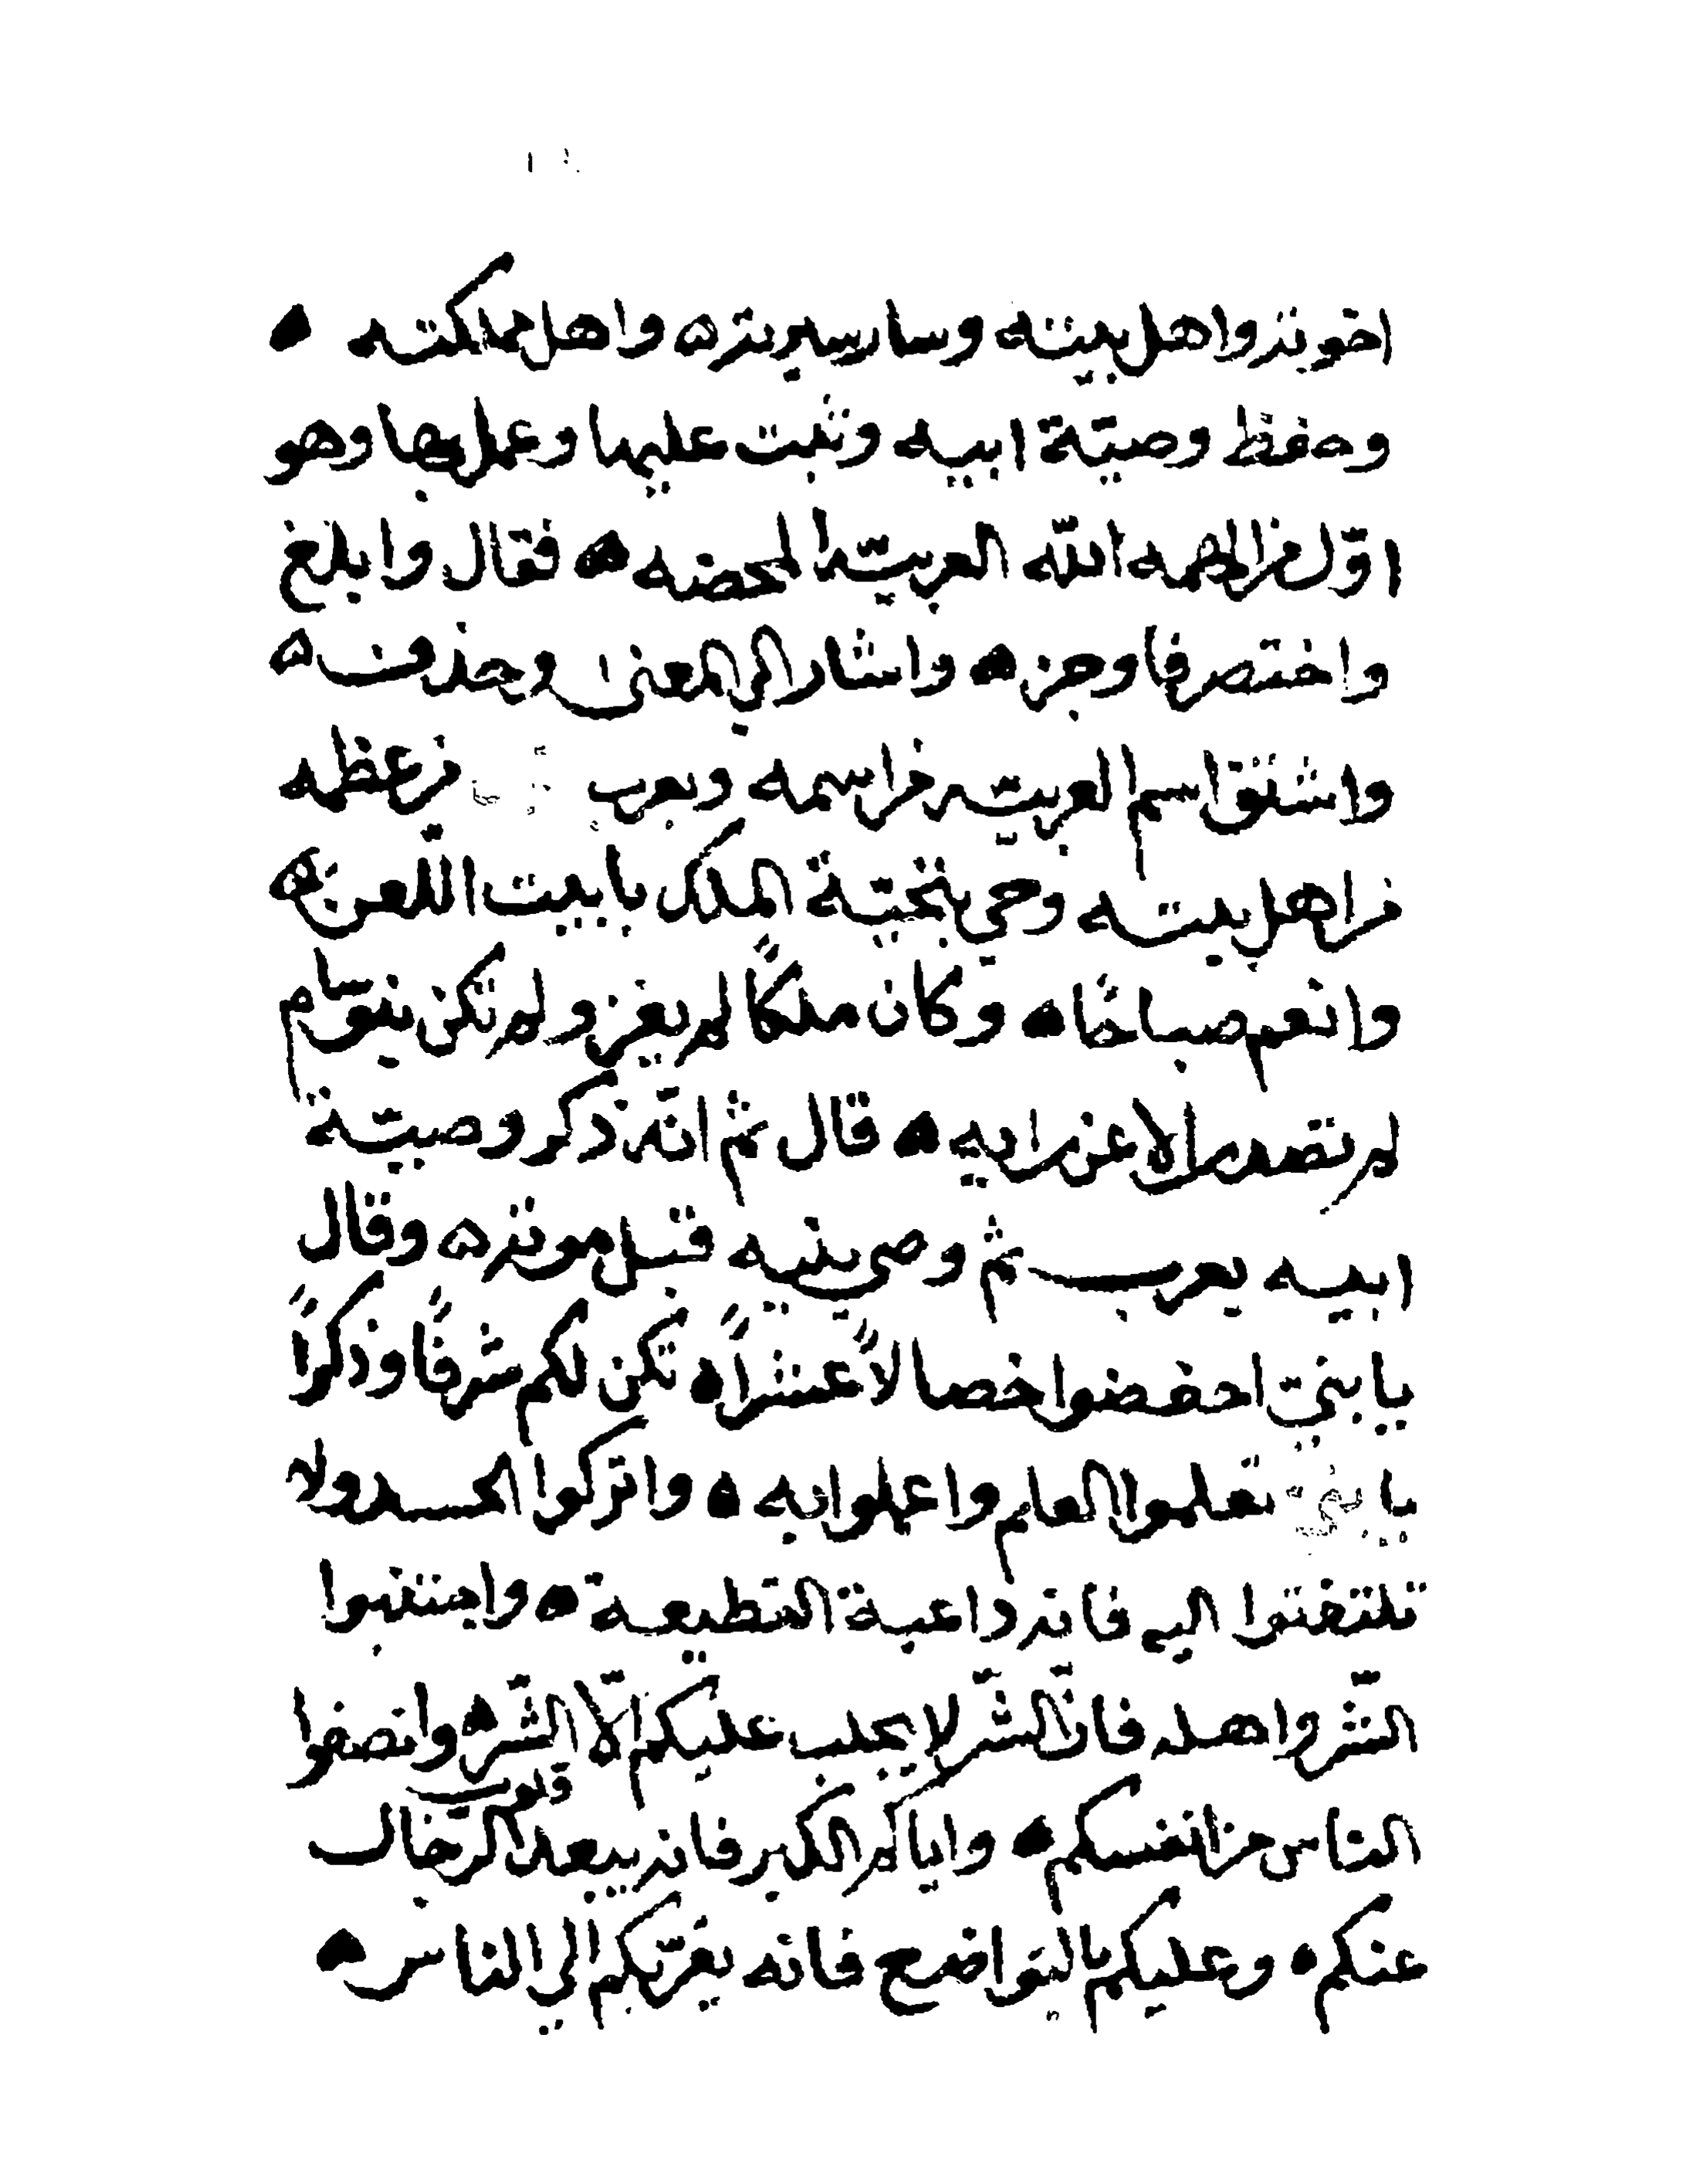 اخوته واهل بيته وسار سيرته واهل مملكته
وحفظ وصيّة ابيه وثبت عليها وعمل بها وهو
اوّل من الهمه الله العربيّه المحضه فقال وابلغ
واختصر فاوجز واشار الي المعنى وحذف
واشتق اسم العربيّه من اسمه ويعرب من عظمه
من اهل بيته وحي بتحيّة الملك بابيت اللعن
وانعم صباحًا وكان ملكًا لم يغز ولم تكن ينوسّام
لم تصدر الا عن رايه قال ثم انّه ذكر وصيّة
ابيه يعرب ثم وصي بنيه قبل موته وقال
يا بنيّ احفضوا خصالاً عشراً تكن لكم شرفًا وذكراً
يا بنيّ تعلموا العلم واعملوا به واتركوا الحسد ولا
تلتفتوا اليه فانه داعية القطيعة واجتنبوا
الشّر واهله فانّ الشّر لا يجلب عليكم الّا الشّر وانصفوا
الناس من انفسكم واياكم الكبر فانه يبعد قلوب الرّجال
عنكم وعليكم بالتواضع فانه يقرّبكم الي الناس